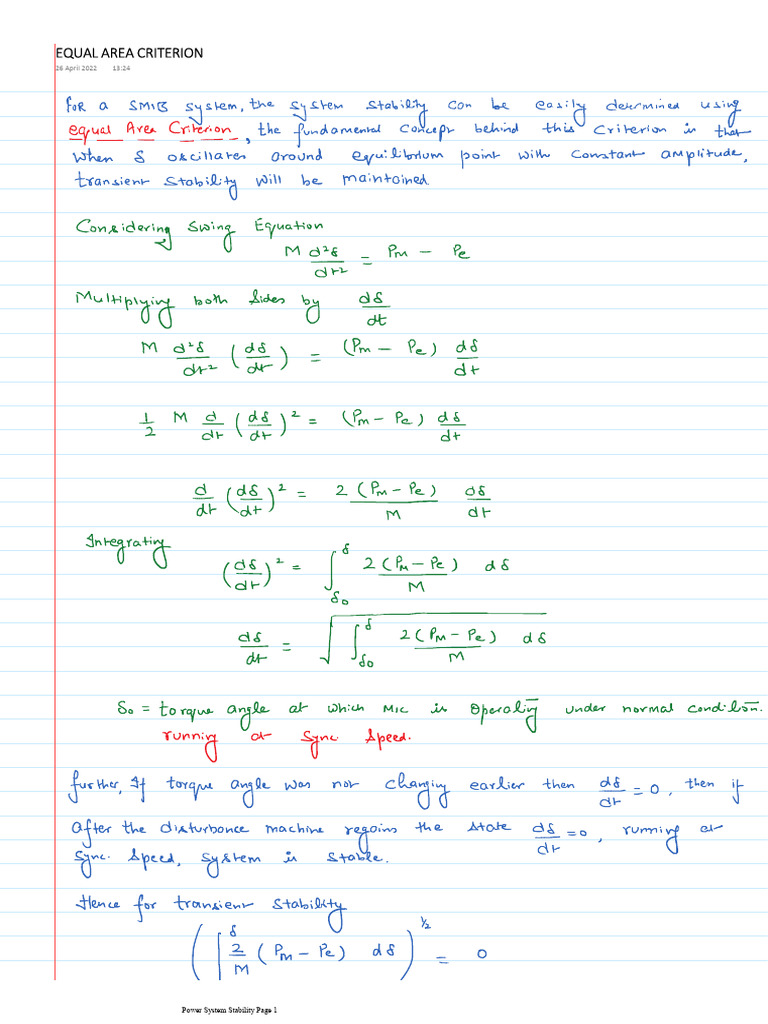 EQUAL AREA CRITERION
26 April 2022 13:24
FOR a SMIB system, the system stability can be easily determined using
equal Area Criterion, the fundamental concept behind this Criterion is that
when δ oscillates around equilibrium point with constant amplitude,
transient stability will be maintained
Considering Swing Equation
M d²δ/dt² = Pm − Pe
Multiplying both sides by dδ/dt
M d²δ/dt² (dδ/dt) = (Pm − Pe) dδ/dt
1/2 M d/dt (dδ/dt)² = (Pm − Pe) dδ/dt
d/dt (dδ/dt)² = 2(Pm − Pe)/M dδ/dt
Integrating
(dδ/dt)² = ∫_δo^δ 2(Pm − Pe)/M dδ
dδ/dt = √(∫_δo^δ 2(Pm − Pe)/M dδ)
δo = torque angle at which M/C is operating under normal condition.
running at sync speed.
further, If torque angle was not changing earlier then dδ/dt = 0, then if
after the disturbance machine regains the state dδ/dt = 0, running at
sync. speed, system is stable.
Hence for transient stability
(∫^δ 2/M (Pm − Pe) dδ)^1/2 = 0
Power System Stability Page 1